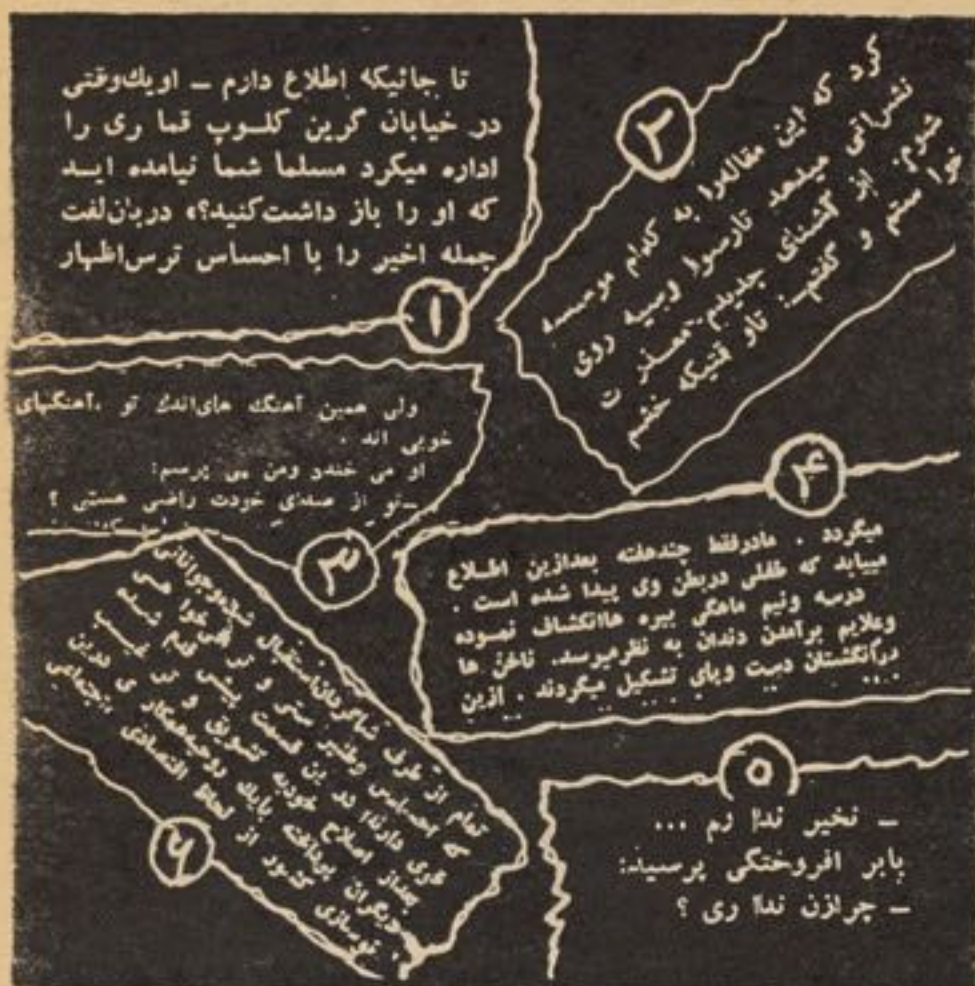 تا جائیکه اطلاع دارم - اویك‌وقتی
در خیابان گرین کلوپ قما ری را
اداره میکرد مسلما شما نیامده ایـد
که او را باز داشت‌کنید؟» دربان‌لفت
جمله اخیر را با احساس ترس‌اظهار
۱
کرد که این مقاله‌را به کدام موسسه
نشراتی میدهد تارسوا وسیه روی
شوم. از آشنای جدیدم معـذر ت
خوا ستم و گفتم: تاو قتیکه خشم
۲
ولی همین آهنگ های‌اندك تو ،آهنگهای
خوبی اند .
او می خندد ومن می پرسم:
-تو از صدای خودت راضی هستی ؟
۳
۴
میگردد . مادرفقط چندهفته بعدازین اطـلاع
مییابد که طفلی دربطن وی پیدا شده است .
درسه ونیم ماهگی بیره هاانکشاف نموده
وعلایم برآمدن دندان به نظرمیرسد. ناخن ها
درانگشتان دست وپای تشکیل میگردند . ازین
۵
- نخیر ندا رم ...
بابر افروختگی پرسید:
- چرازن ندا ری ؟
۶
تمام از طرف شاگردان‌استقبال شده‌وجوانانی
که احساس وطنپر ستی و تر قی‌خوا هی
دارند در ین قسمت پیش قدم شده
بعداز اصلاح خودبه تشویق و تر غیب
دیگران پرداخته بایك روحیه‌همکار ی درین
نوسازی کشور از لحاظ اقتصادی ،اجتماعی